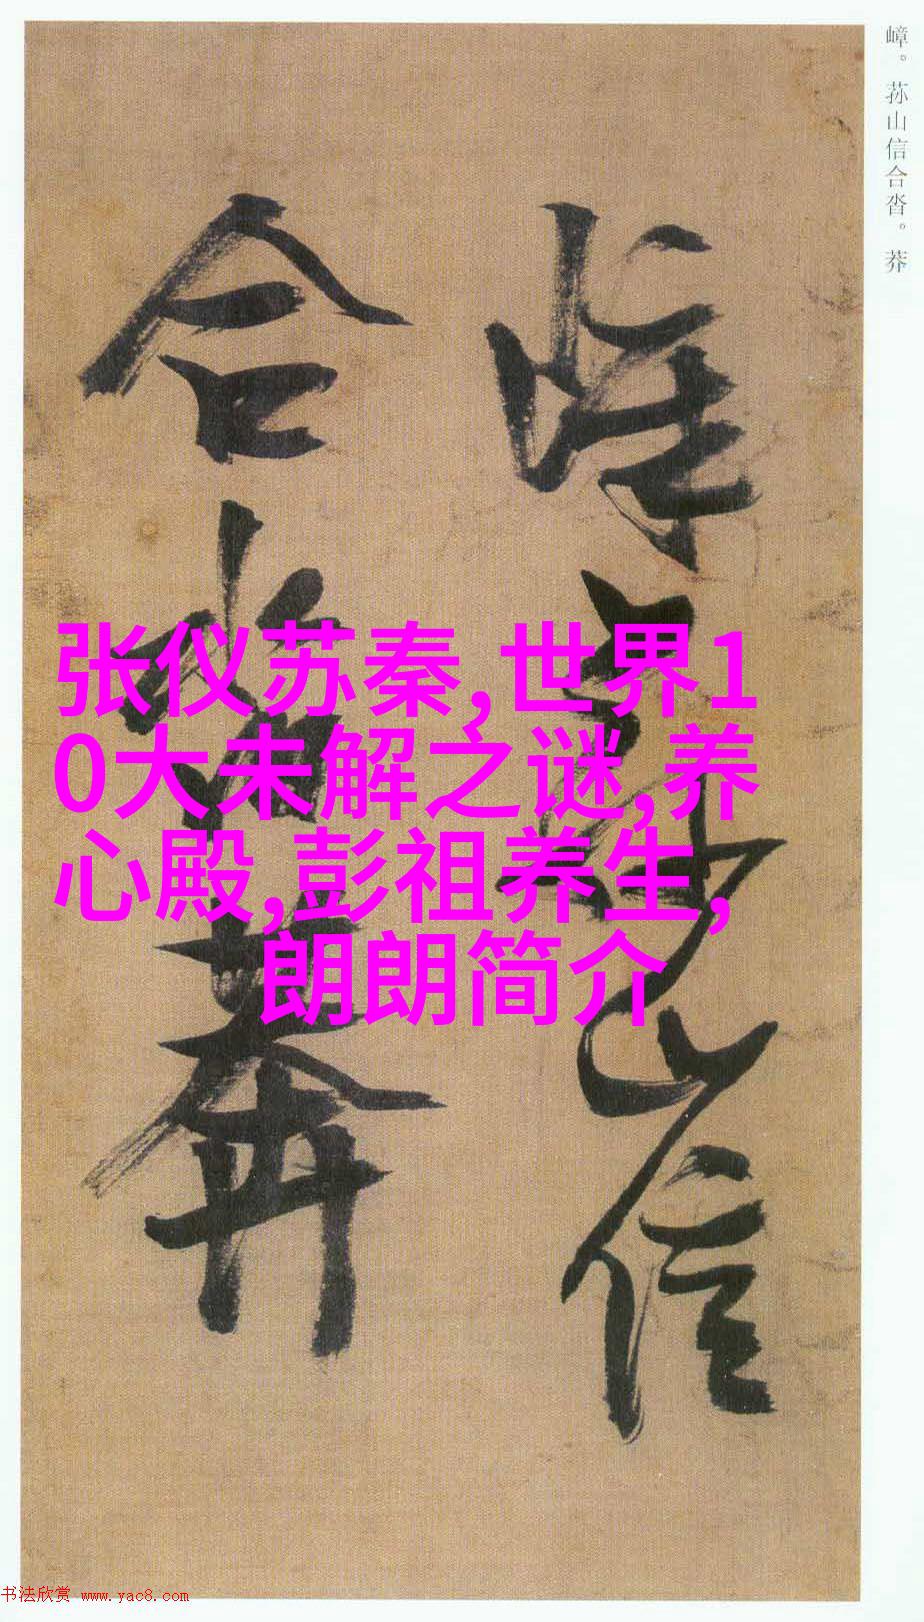 嶂。荪山信合沓。莽
嶂荪山信
合沓莽
张仪苏秦,世界1
0大未解之谜,养
心殿,彭祖养生,
朗朗简介
书法欣赏 www.yac8.com